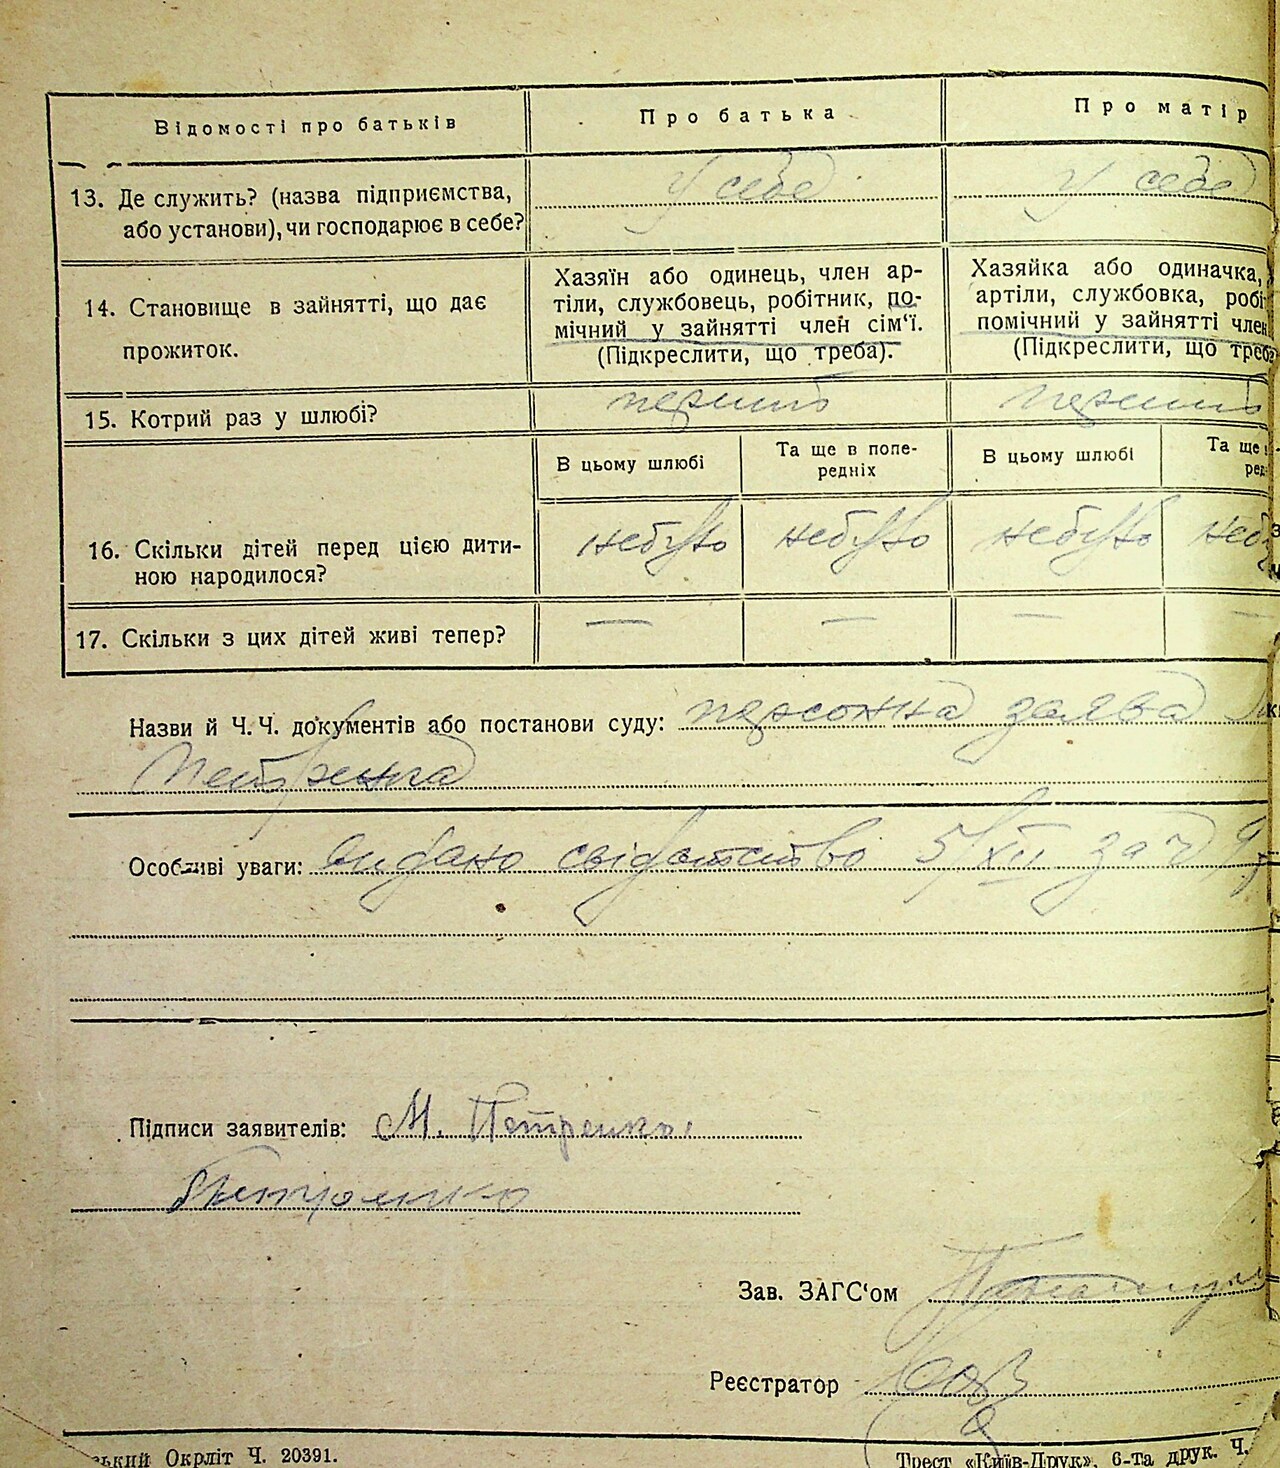 Відомості про батьків
Про батька
Про матір
13. Де служить? (назва підприємства,
або установи), чи господарює в себе?
У себе
У себе
14. Становище в зайнятті, що дає
прожиток.
Хазяїн або одинець, член ар-
тіли, службовець, робітник, по-
мічний у зайнятті член сім‘ї.
(Підкреслити, що треба).
Хазяйка або одиначка,
артіли, службовка, робіт
помічний у зайнятті член
(Підкреслити, що треба
15. Котрий раз у шлюбі?
перший
перший
В цьому шлюбі
Та ще в попе-
редніх
В цьому шлюбі
Та ще
ред
16. Скільки дітей перед цією дити-
ною народилося?
небуло
небуло
небуло
неб
17. Скільки з цих дітей живі тепер?
— — — —
Назви й Ч. Ч. документів або постанови суду: персональна заява
Петренка
Особливі уваги: видано свідоцтво 5/XII за ч
Підписи заявителів: М. Петренко
Петренко
Зав. ЗАГС‘ом
Реєстратор
ський Окрліт Ч. 20391.
Трест «Київ-Друк», 6-та друк. Ч.